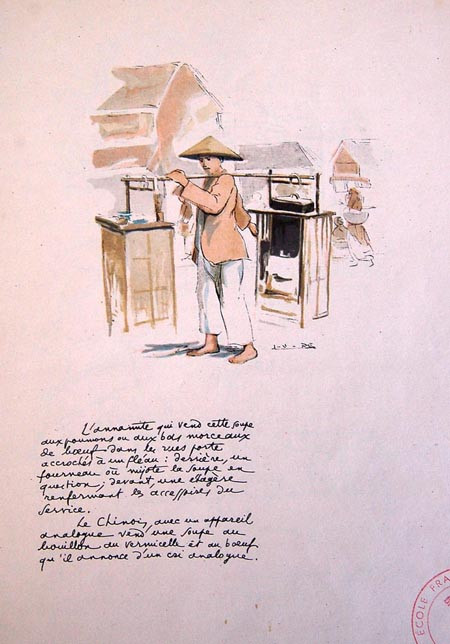 L'annamite qui vend cette soupe
aux poumons ou aux bas morceaux
de bœuf dans les rues porte
accrochés à un fléau : derrière, un
fourneau où mijote la soupe en
question ; devant une étagère
renfermant les accessoires du
service.
Le Chinois, avec un appareil
analogue vend une soupe au
bouillon au vermicelle et au bœuf
qu'il annonce d'un cri analogue.
ECOLE FRA